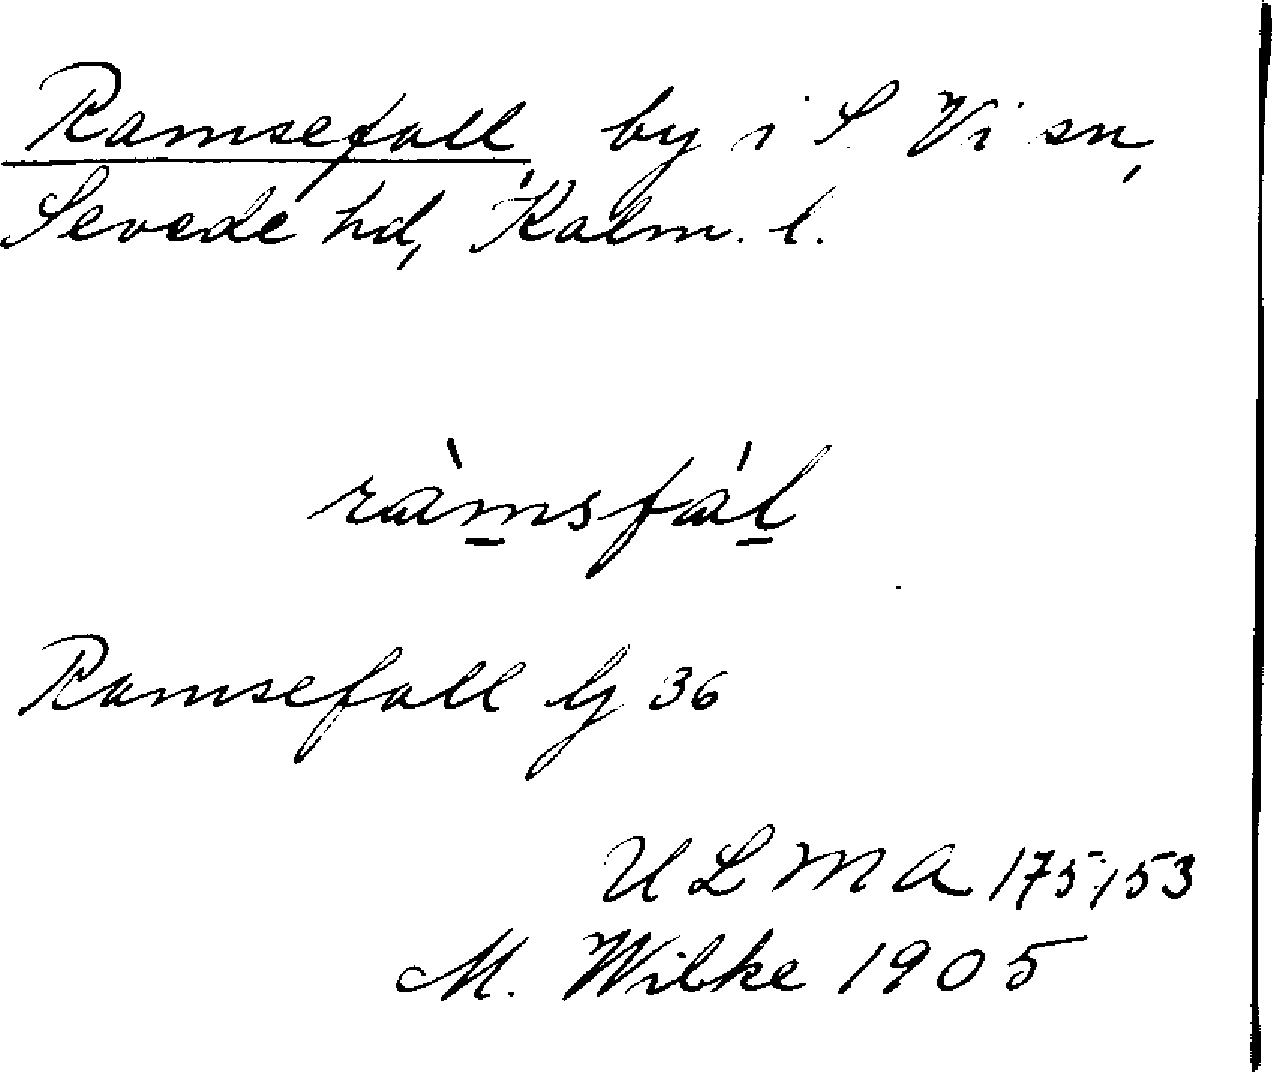 Ramsefall, by i S. Vi sn,
Sevede hd, Kalm. l.
ràmsfál
Ramsefall Gj 36
ULMA 175:53
M. Wilke 1905